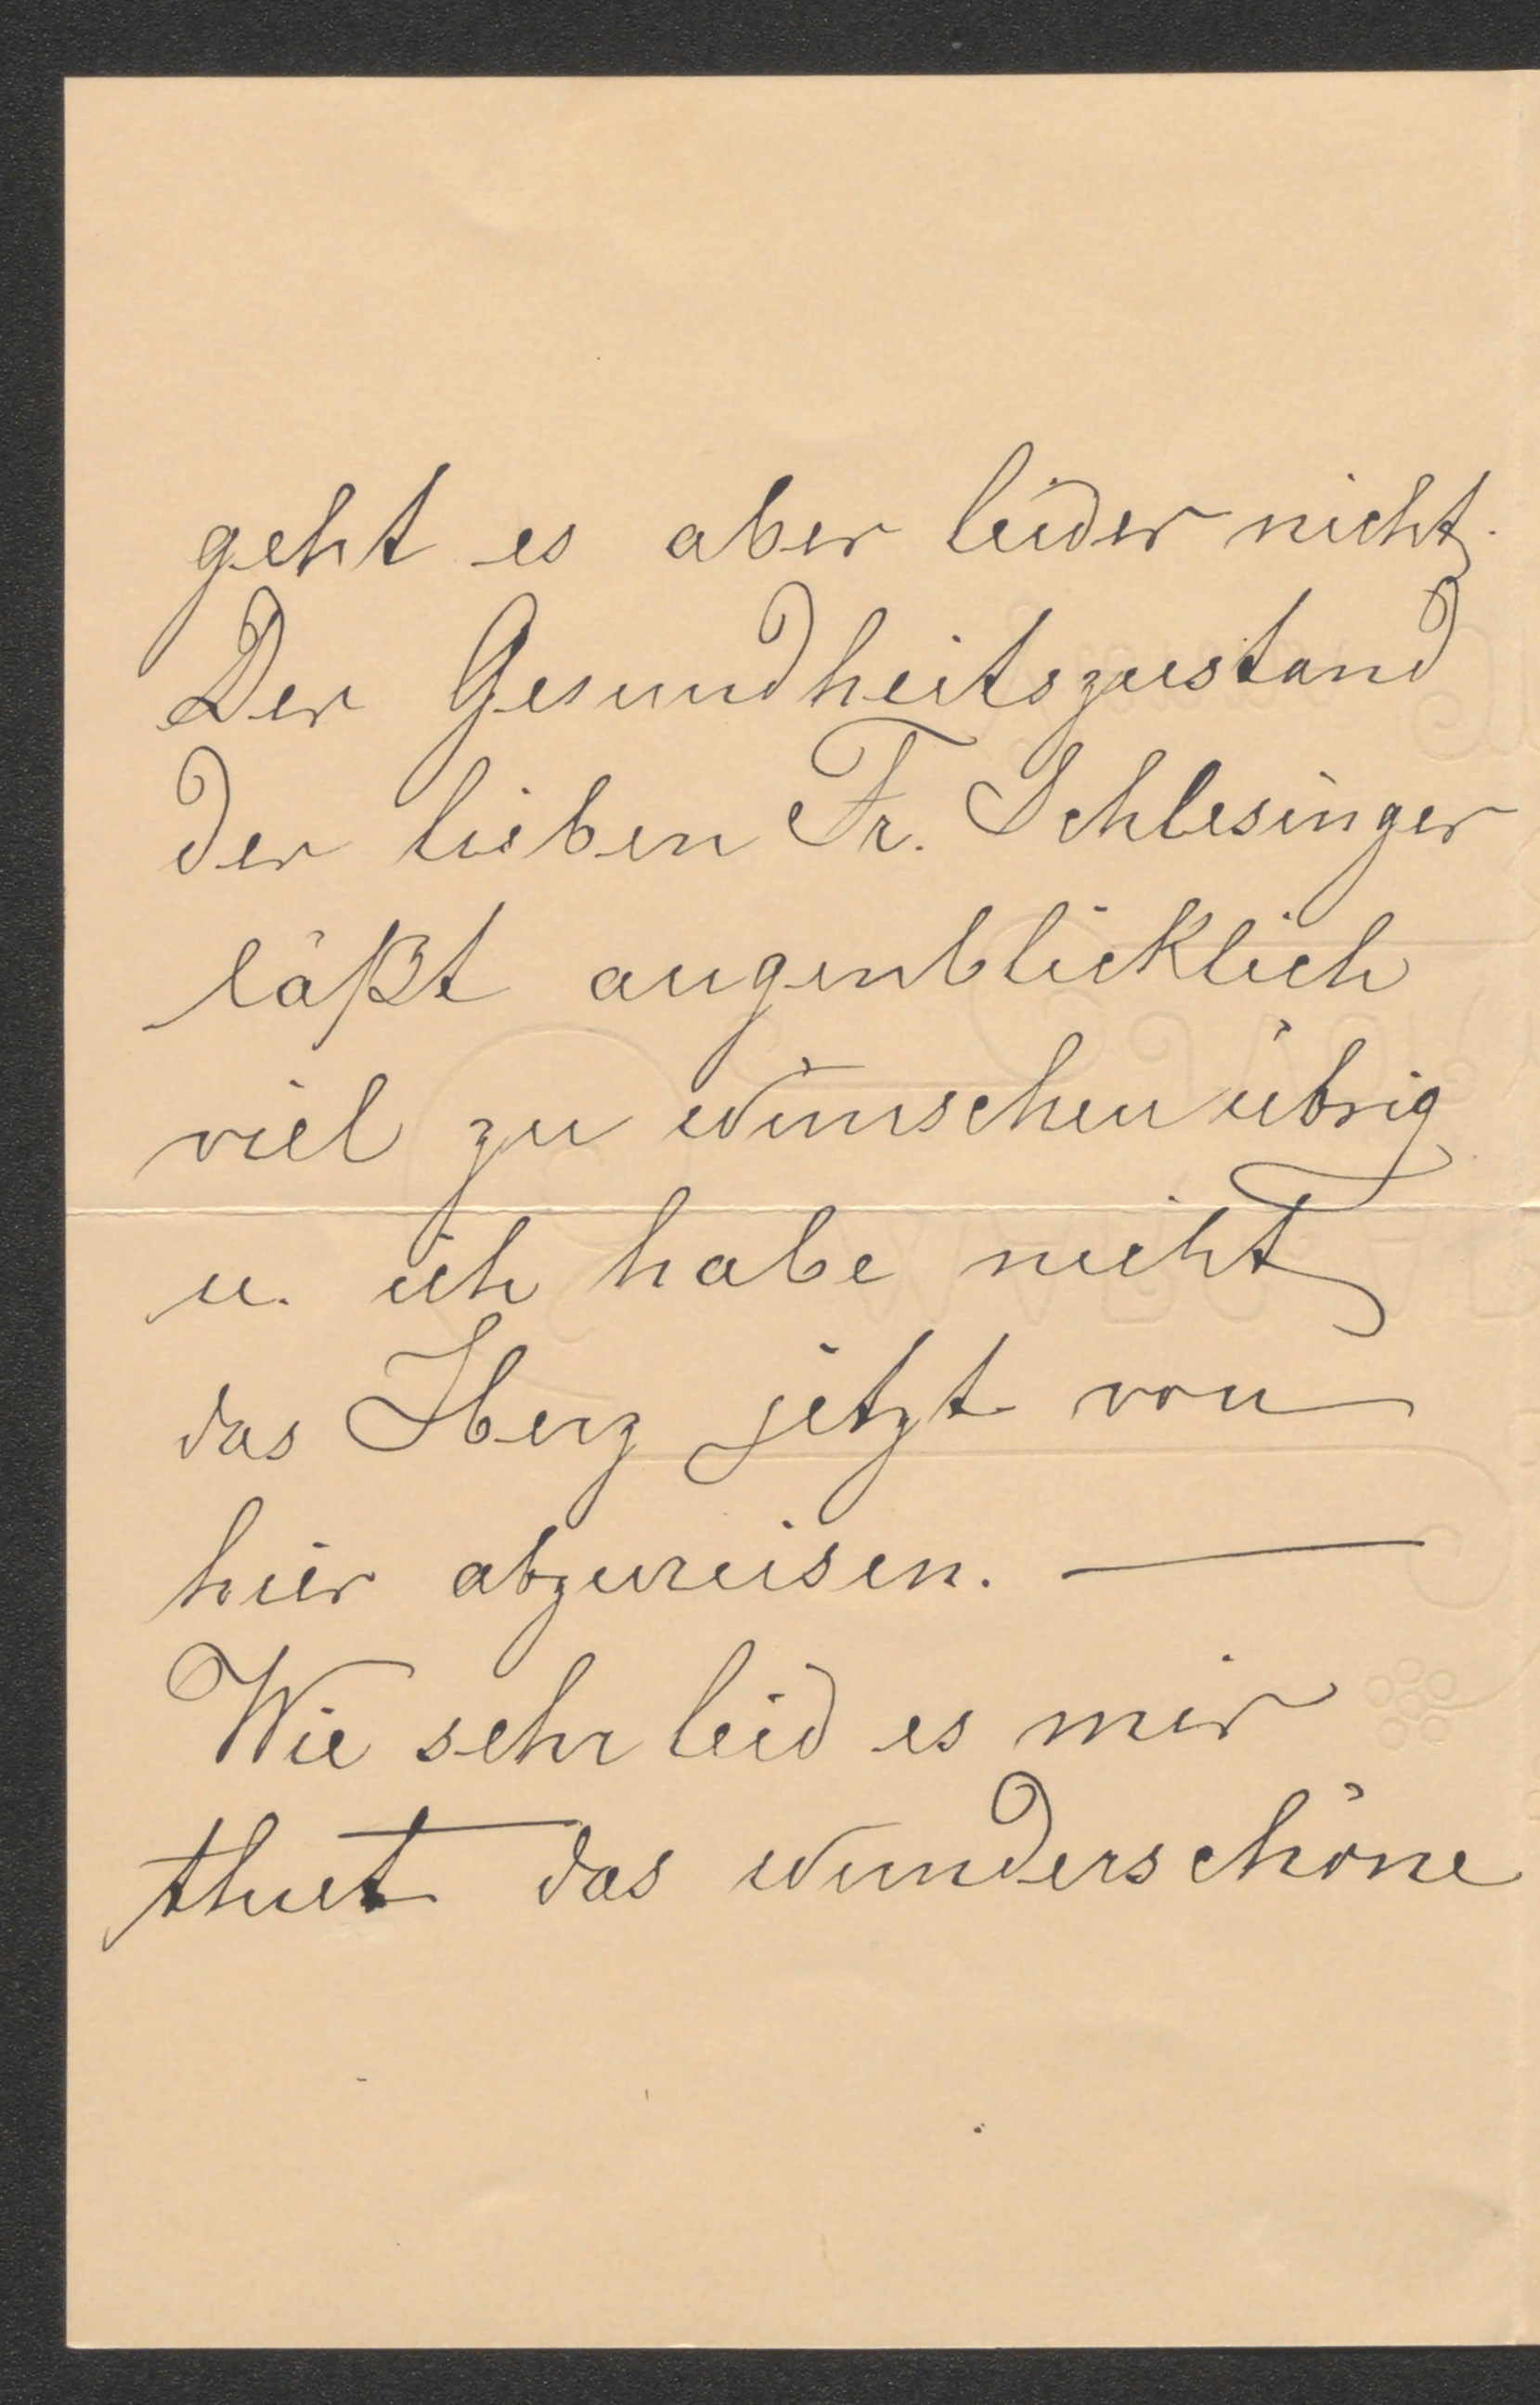 geht es aber leider nicht.
Der Gesundheitszustand
der lieben Fr. Schlesinger
läßt augenblicklich
viel zu wünschen übrig
u. ich habe nicht
das Herz jetzt von
hier abzureisen. —
Wie sehr leid es mir
thuet das wunderschöne